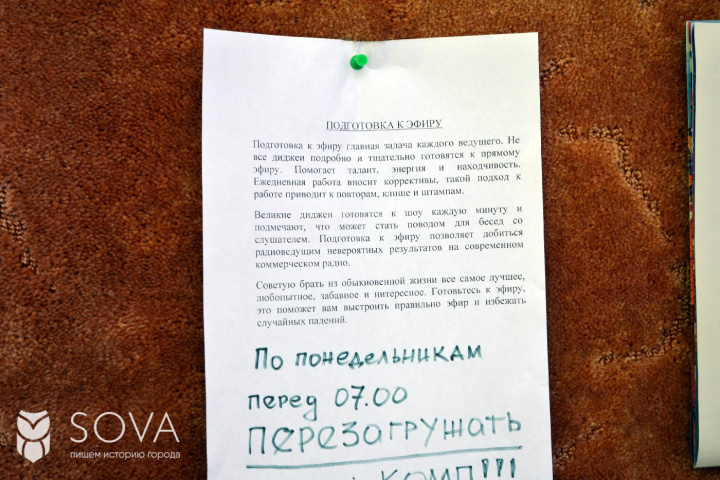 ПОДГОТОВКА К ЭФИРУ
Подготовка к эфиру главная задача каждого ведущего. Не
все диджеи подробно и тщательно готовятся к прямому
эфиру. Помогает талант, энергия и находчивость.
Ежедневная работа вносит коррективы, такой подход к
работе приводит к повторам, клише и штампам.
Великие диджеи готовятся к шоу каждую минуту и
подмечают, что может стать поводом для бесед со
слушателем. Подготовка к эфиру позволяет добиться
радиоведущим невероятных результатов на современном
коммерческом радио.
Советую брать из обыкновенной жизни все самое лучшее,
любопытное, забавное и интересное. Готовьтесь к эфиру,
это поможет вам выстроить правильно эфир и избежать
случайных падений.
По понедельникам
перед 07.00
ПЕРЕЗАГРУЖАТЬ
КОМП!!!
SOVA
пишем историю города